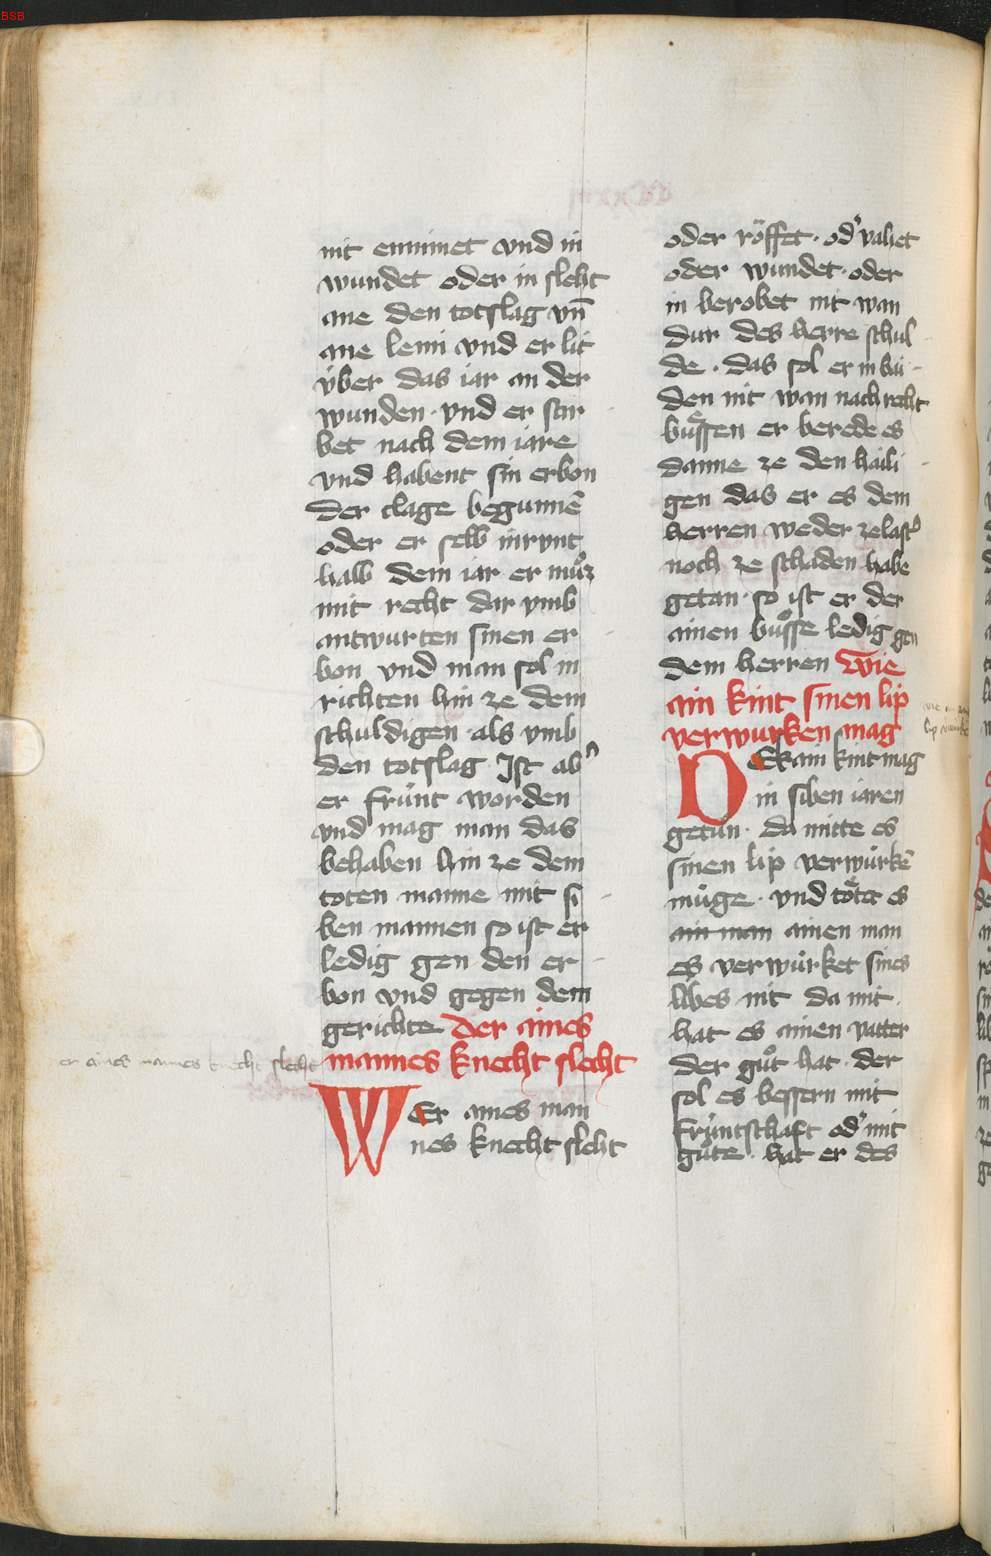 BSB
nit ennimet vnd in
wundet oder in sleht
ane den totslag vn̄
ane lemi vnd er lit
v́ber das iar an der
wunden · vnd er stir
bet nach dem iare
vnd habent sin erbon
der clage begunnē
oder er selb inrvnt
halb dem iar er mů̊z
mit recht dar vmb
antwurten sinen er
bon vnd man sol in
richten hin ze dem
schuldigen als vmb
den totslag Ist ab
er frúnt worden
vnd mag man das
behaben hin ze dem
toten manne mit si
ben mannen so ist er
ledig gen den er
bon vnd gegen dem
gerichte Der aines
mannes knecht slecht
er aines mannes knecht slecht
WEr aines man
nes knecht sleht
oder röffet · od' vahet
oder wundet · oder
in berobet nit wan
dur des herre schul
de · das sol er in bů
den nit wan nach recht
bůssen er berede es
danne ze den haili
gen das er es dem
herren weder ze last'
noch ze schaden habe
getan · so ist er der
ainen bůsse ledig gen
dem herren Wie
ain kint sinen lip
verwurken mag
DEkain kint mag
in siben iaren
getůn · da mitte es
sinen lip verwúrkē
múge · vnd tötet es
ain man ainen man
es verwúrket sines
libes nit da mit
hat es ainen vatter
der gůt hat · der
sol es bessern mit
frúntschaft od' mit
gůte · hat er des